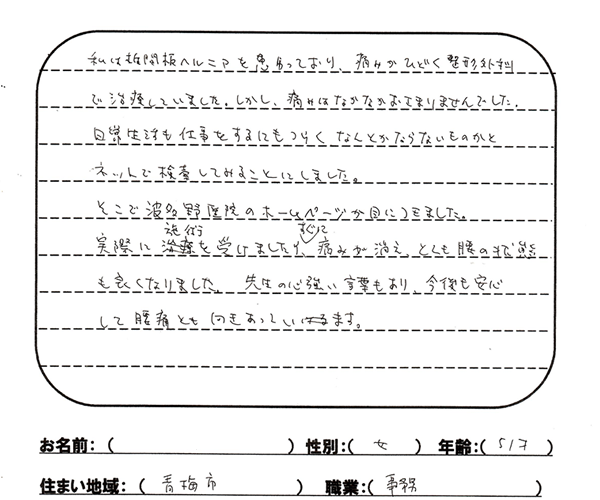 私は椎間板ヘルニアを患らっており、痛みがひどく整形外科
で治療していました。しかし、痛みはなかなかおさまりませんでした。
日常生活も仕事をするにもつらく なんとかならないものかと
ネットで検索してみることにしました。
そこで波多野医院のホームページが目につきました。
施術 すぐに
実際に 治療を受けましたら、痛みが消え、とても腰の状態
も良くなりました。先生の心強い言葉もあり、今後も安心
して腰痛とも向きあっていけます。
お名前:( ) 性別:( 女 ) 年齢:( 51才 )
住まい地域:( 青梅市 ) 職業:( 事務 )